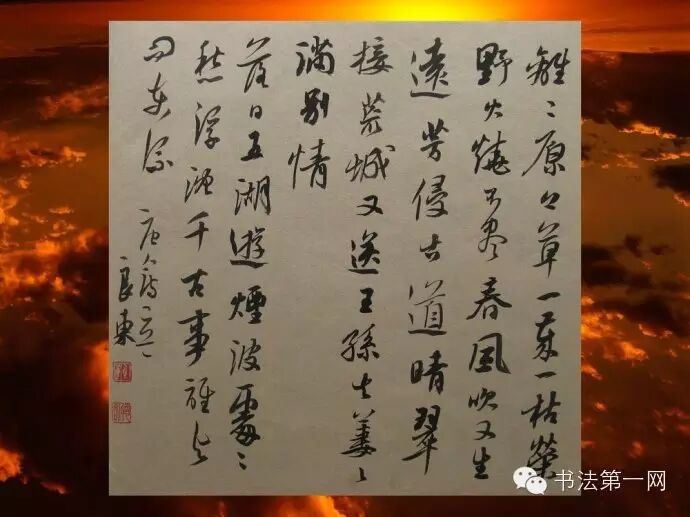 離〻原上草一歲一枯榮
野火燒不盡春風吹又生
遠芳侵古道晴翠
接荒城又送王孫去萋〻
滿別情
落日五湖遊煙波處〻
愁浮沉千古事誰與
問東流
良東
书法第一网